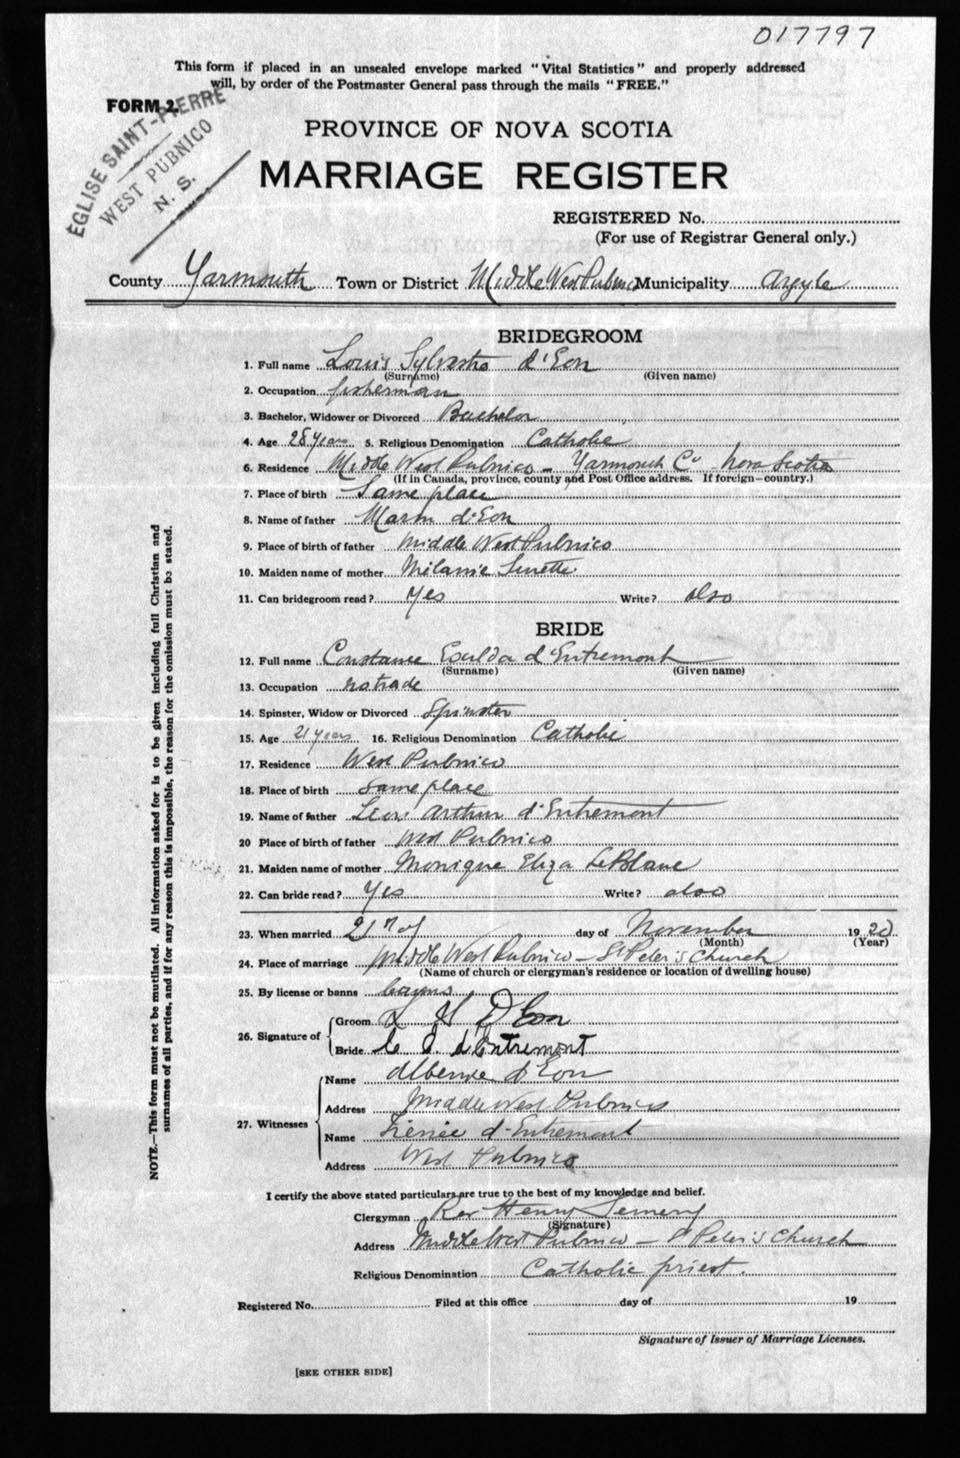 017797
This form if placed in an unsealed envelope marked "Vital Statistics" and properly addressed
will, by order of the Postmaster General pass through the mails "FREE."
FORM 2.
ÉGLISE SAINT-PIERRE
WEST PUBNICO
N. S.
PROVINCE OF NOVA SCOTIA
MARRIAGE REGISTER
REGISTERED No.
(For use of Registrar General only.)
County Yarmouth Town or District Middle West Pubnico Municipality Argyle
BRIDEGROOM
1. Full name Louis Sylvestre d'Eon
(Surname) (Given name)
2. Occupation fisherman
3. Bachelor, Widower or Divorced Bachelor
4. Age 28 years 5. Religious Denomination Catholic
6. Residence Middle West Pubnico - Yarmouth Co Nova Scotia
(If in Canada, province, county and Post Office address. If foreign-country.)
7. Place of birth Same place
8. Name of father d'Eon
9. Place of birth of father Middle West Pubnico
10. Maiden name of mother Mélanie
11. Can bridegroom read? Yes Write? also
BRIDE
12. Full name Constance d'Entremont
(Surname) (Given name)
13. Occupation no trade
14. Spinster, Widow or Divorced Spinster
15. Age 21 years 16. Religious Denomination Catholic
17. Residence West Pubnico
18. Place of birth Same place
19. Name of father Arthur d'Entremont
20 Place of birth of father West Pubnico
21. Maiden name of mother Monique Eliza LeBlanc
22. Can bride read? Yes Write? also
23. When married day of November 1920
(Month) (Year)
24. Place of marriage Middle West Pubnico - St Peter's Church
(Name of church or clergyman's residence or location of dwelling house)
25. By license or banns banns
26. Signature of Groom D'Eon
Bride d'Entremont
27. Witnesses Name d'Eon
Address Middle West Pubnico
Name d'Entremont
Address West Pubnico
I certify the above stated particulars are true to the best of my knowledge and belief.
Clergyman Rev Henry
(Signature)
Address Middle West Pubnico - St Peter's Church
Religious Denomination Catholic priest.
Registered No. Filed at this office day of 19
Signature of Issuer of Marriage Licenses.
[SEE OTHER SIDE]
NOTE.—This form must not be mutilated. All information asked for is to be given including full Christian and
surnames of all parties, and if for any reason this is impossible, the reason for the omission must be stated.